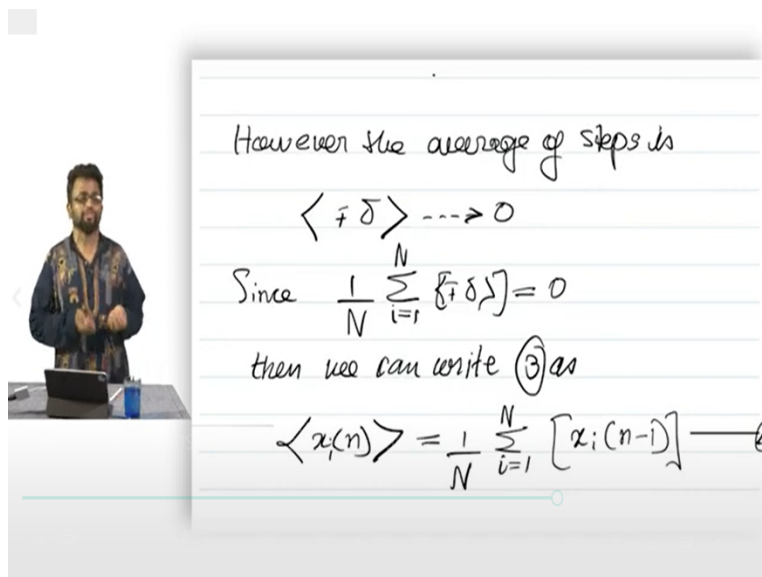 However the average of steps is
⟨∓δ⟩ ---> 0
Since 1/N N∑i=1 [∓δ] = 0
then we can write ③ as
⟨xi(n)⟩ = 1/N N∑i=1 [xi(n-1)] —